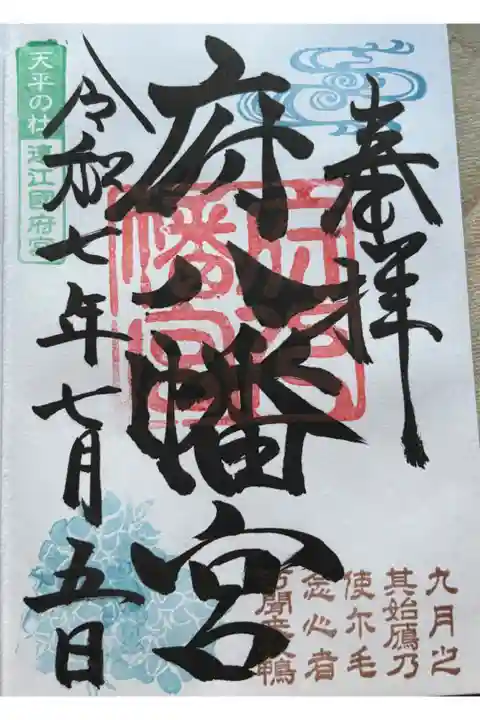 奉拝
府八幡宮
令和七年七月五日
天平の杜
遠江國府宮
府八
幡宮
九月之
其始鴈乃
使尓毛
念心者
聞来鴨